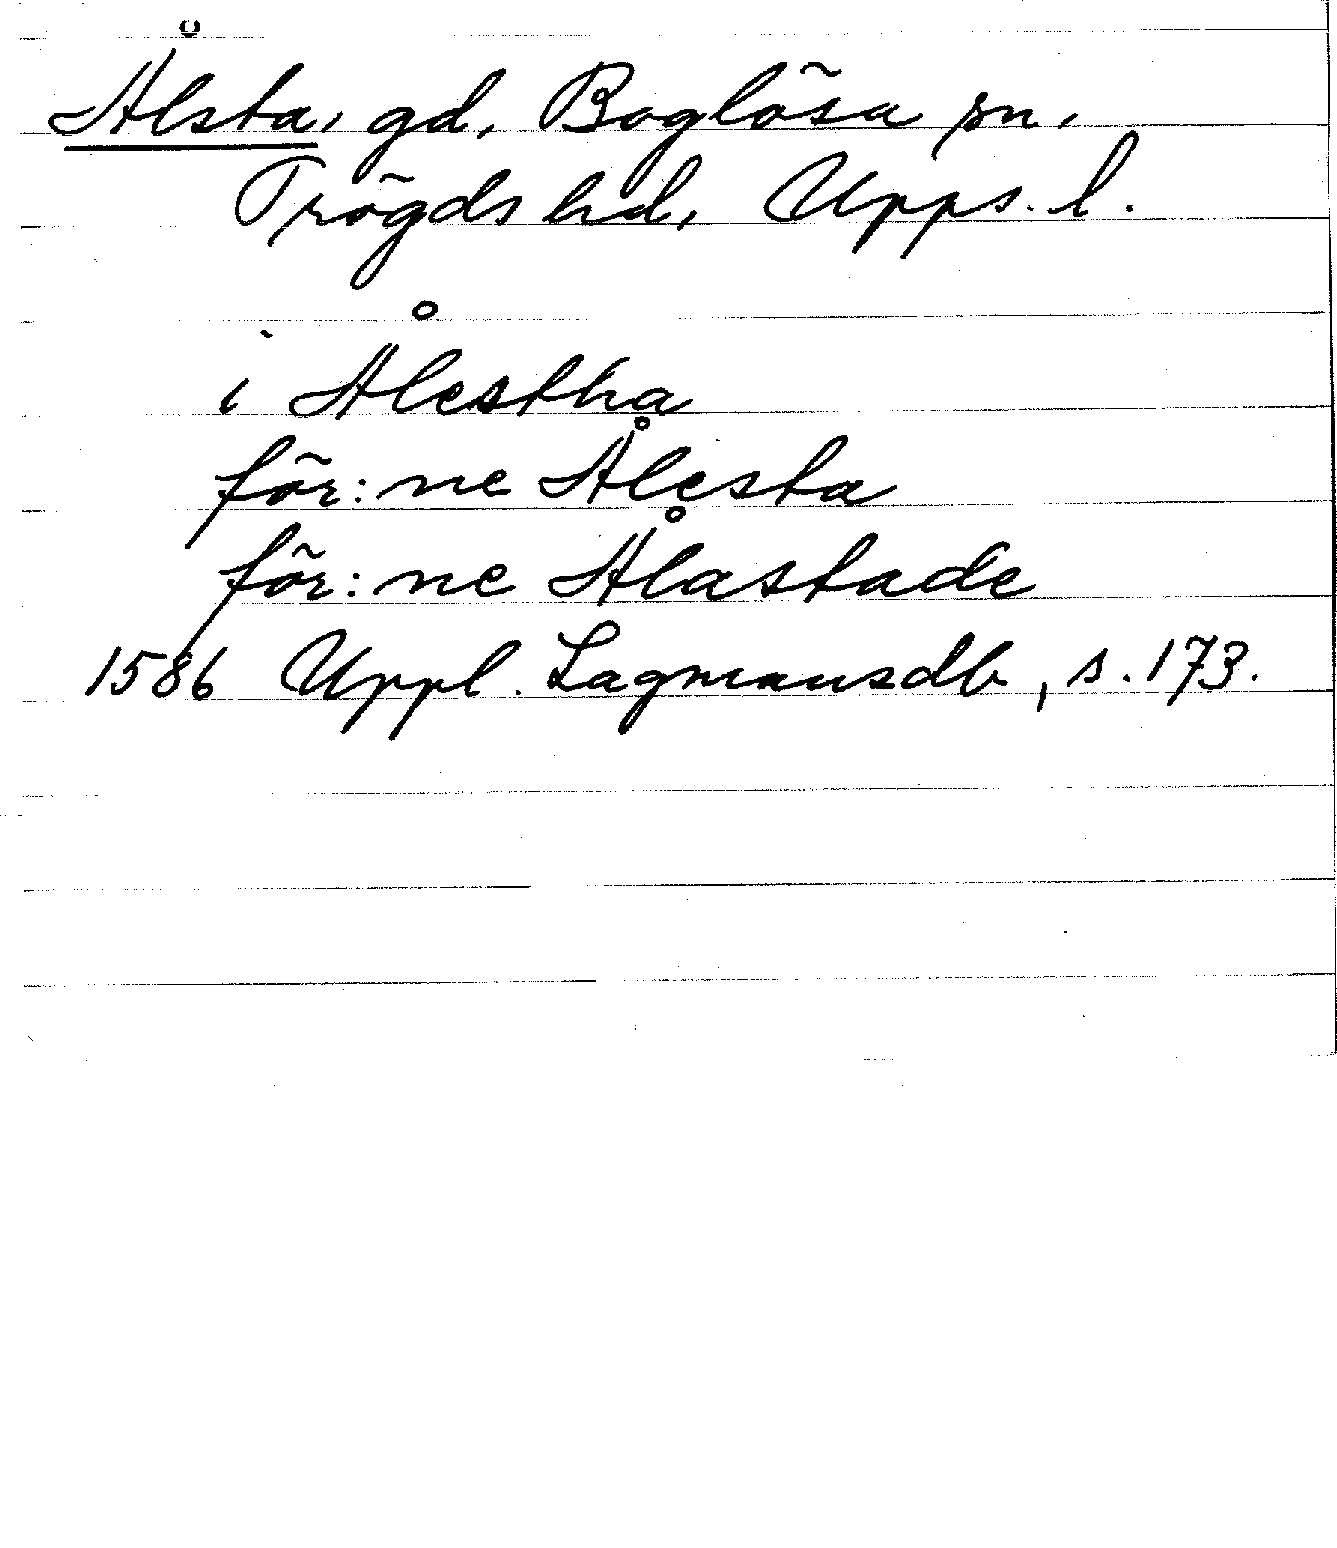 Ålsta, gd, Boglösa sn,
Trögds hd, Upps. l.
i Ålestha
för:ne Ålesta
för:ne Ålastade
1586 Uppl. Lagmansdb, s. 173.